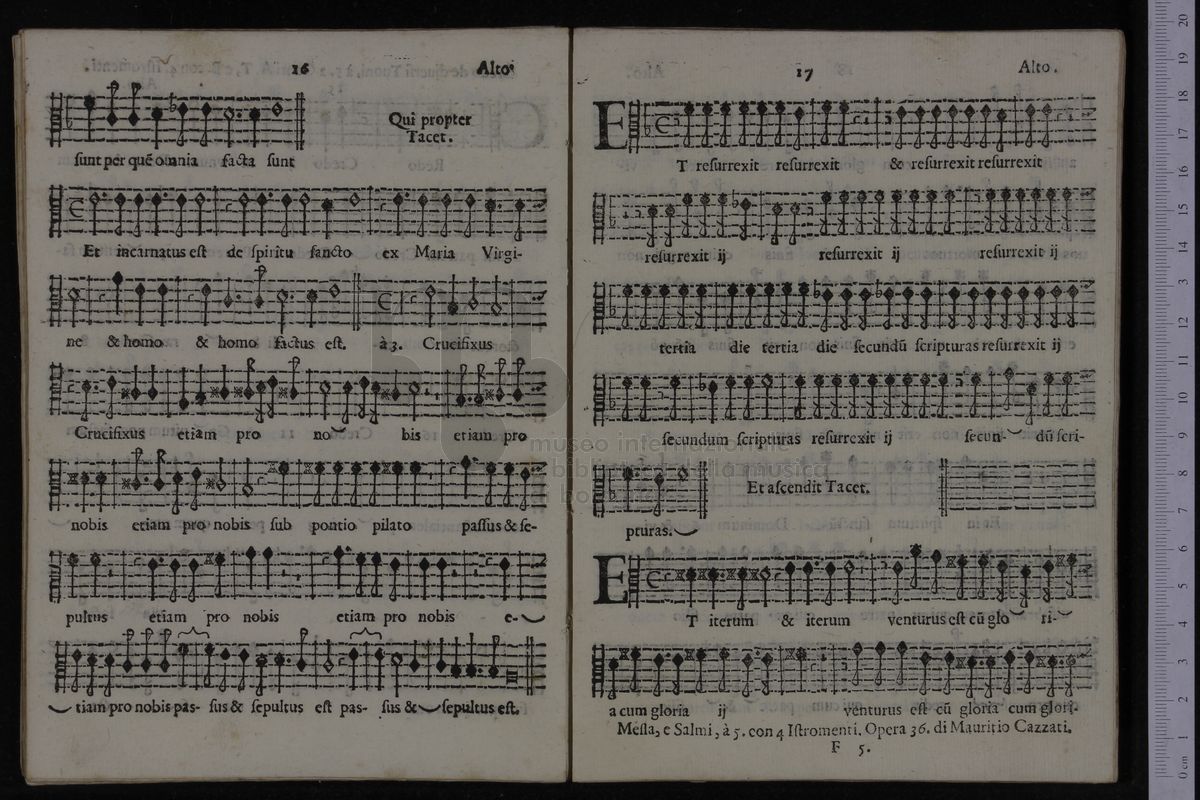 16 Alto.
Qui propter
Tacet.
sunt per quē omnia facta sunt
Et incarnatus est de spiritu sancto ex Maria Virgi-
ne & homo & homo factus est. à 3. Crucifixus
Crucifixus etiam pro no bis etiam pro
nobis etiam pro nobis sub pontio pilato passus & se-
pultus etiam pro nobis etiam pro nobis e-
tiam pro nobis pas- sus & sepultus est pas- sus & sepultus est.
17 Alto.
ET resurrexit resurrexit & resurrexit resurrexit
resurrexit ij resurrexit ij resurrexit ij
tertia die tertia die secundū scripturas resurrexit ij
secundum scripturas resurrexit ij secun- dū scri-
pturas. Et ascendit Tacet.
ET iterum & iterum venturus est cū glo ri-
a cum gloria ij venturus est cū gloria cum glori-
Messa, e Salmi, à 5. con 4 Istromenti. Opera 36. di Mauritio Cazzati.
F 5.
museo internazionale
biblioteca della musica
di bologna
0 cm 1 2 3 4 5 6 7 8 9 10 11 12 13 14 15 16 17 18 19 20